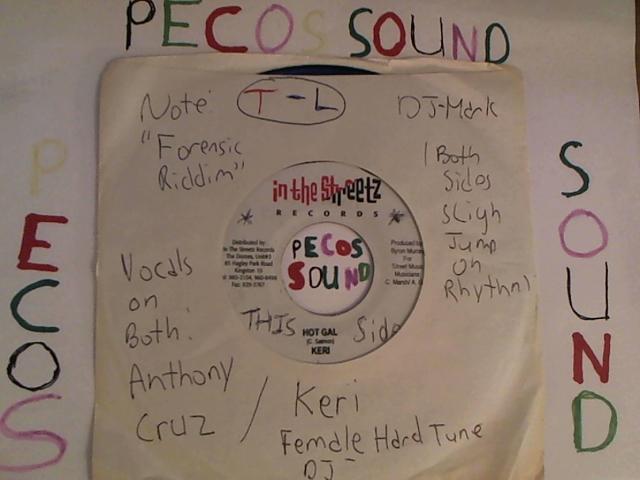 PECOS SOUND
Note:
"Forensic
Riddim"
T-L
DJ-Mark
Both
Sides
Sligh
Jump
on
Rhythm
in the Streetz
RECORDS
Distributed by:
In The Streetz Records
The Domes, Unit#3
85 Hagley Park Road
Kingston 10
Produced by
Byron Murray
For
Street Music
Musicians:
PECOS
SOUND
THIS Side
HOT GAL
KERI
Vocals
on
Both:
Anthony
Cruz /
Keri
Female Hard Tune
DJ
PECOS
SOUND